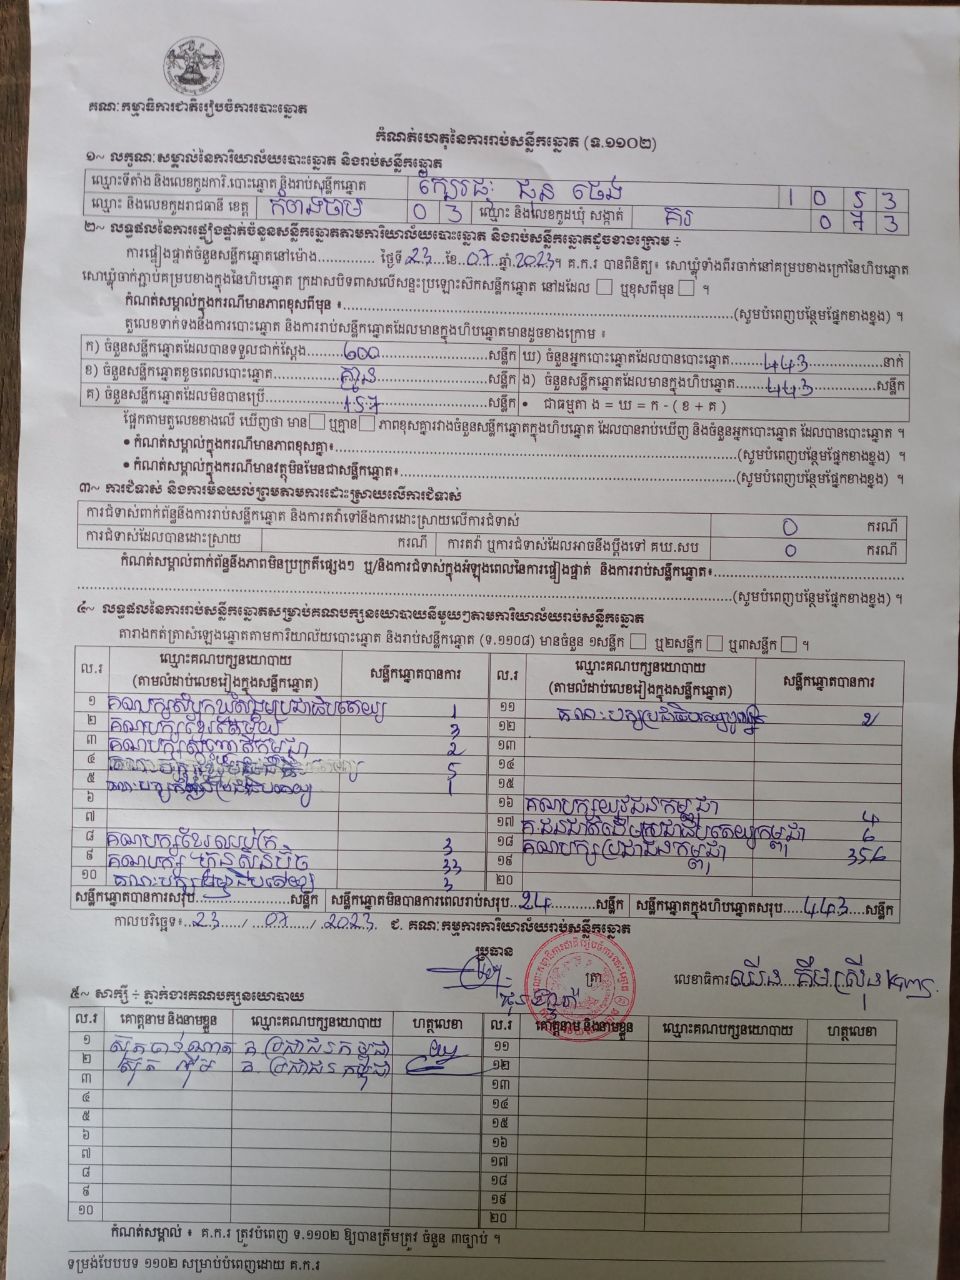 គណៈកម្មាធិការជាតិរៀបចំការបោះឆ្នោត
កំណត់ហេតុនៃការរាប់សន្លឹកឆ្នោត (ទ.១១០២)
១~ លក្ខណៈសម្គាល់នៃការិយាល័យបោះឆ្នោត និងរាប់សន្លឹកឆ្នោត
ឈ្មោះទីតាំង និងលេខកូដការិ.បោះឆ្នោត និងរាប់សន្លឹកឆ្នោត 1 0 5 3
ឈ្មោះ និងលេខកូដរាជធានី ខេត្ត កំពង់ចាម 0 3 ឈ្មោះ និងលេខកូដឃុំ សង្កាត់ គរ 0 7 3
២~ លទ្ធផលនៃការផ្ទៀងផ្ទាត់ចំនួនសន្លឹកឆ្នោតតាមការិយាល័យបោះឆ្នោត និងរាប់សន្លឹកឆ្នោតដូចខាងក្រោម ÷
ការផ្ទៀងផ្ទាត់ចំនួនសន្លឹកឆ្នោតនៅម៉ោង.............. ថ្ងៃទី.23...ខែ..07..ឆ្នាំ.2023។ គ.ក.រ បានពិនិត្យ៖ សោឃ្លុំទាំងពីរចាក់នៅគម្របខាងក្រៅនៃហិបឆ្នោត
សោឃ្លុំចាក់ភ្ជាប់គម្របខាងក្នុងនៃហិបឆ្នោត ក្រដាសបិទពាសលើសន្ទះប្រឡោះស៊កសន្លឹកឆ្នោត នៅដដែល ☐ ឬខុសពីមុន ☐ ។
កំណត់សម្គាល់ក្នុងករណីមានភាពខុសពីមុន ៖..............................(សូមបំពេញបន្ថែមផ្នែកខាងខ្នង) ។
តួលេខទាក់ទងនឹងការបោះឆ្នោត និងការរាប់សន្លឹកឆ្នោតដែលមានក្នុងហិបឆ្នោតមានដូចខាងក្រោម ៖
ក) ចំនួនសន្លឹកឆ្នោតដែលបានទទួលជាក់ស្តែង........600........សន្លឹក ឃ) ចំនួនអ្នកបោះឆ្នោតដែលបានបោះឆ្នោត........443........នាក់
ខ) ចំនួនសន្លឹកឆ្នោតខូចពេលបោះឆ្នោត........គ្មាន........សន្លឹក ង) ចំនួនសន្លឹកឆ្នោតដែលមានក្នុងហិបឆ្នោត........443........សន្លឹក
គ) ចំនួនសន្លឹកឆ្នោតដែលមិនបានប្រើ........157........សន្លឹក • ជាធម្មតា ង = ឃ = ក - ( ខ + គ )
ផ្អែកតាមតួលេខខាងលើ ឃើញថា មាន ☐ ឬគ្មាន ☐ ភាពខុសគ្នារវាងចំនួនសន្លឹកឆ្នោតក្នុងហិបឆ្នោត ដែលបានរាប់ឃើញ និងចំនួនអ្នកបោះឆ្នោត ដែលបានបោះឆ្នោត ។
• កំណត់សម្គាល់ក្នុងករណីមានភាពខុសគ្នា៖..............................(សូមបំពេញបន្ថែមផ្នែកខាងខ្នង) ។
• កំណត់សម្គាល់ក្នុងករណីមានវត្ថុមិនមែនជាសន្លឹកឆ្នោត៖..............................(សូមបំពេញបន្ថែមផ្នែកខាងខ្នង) ។
៣~ ការជំទាស់ និងការមិនយល់ព្រមតាមការដោះស្រាយលើការជំទាស់
ការជំទាស់ពាក់ព័ន្ធនឹងការរាប់សន្លឹកឆ្នោត និងការតវ៉ាទៅនឹងការដោះស្រាយលើការជំទាស់ 0 ករណី
ការជំទាស់ដែលបានដោះស្រាយ ករណី ការតវ៉ា ឬការជំទាស់ដែលអាចនឹងប្តឹងទៅ គឃ.សប 0 ករណី
កំណត់សម្គាល់ពាក់ព័ន្ធនឹងភាពមិនប្រក្រតីផ្សេងៗ ឬ/និងការជំទាស់ក្នុងអំឡុងពេលនៃការផ្ទៀងផ្ទាត់ និងការរាប់សន្លឹកឆ្នោត៖..............................
..............................(សូមបំពេញបន្ថែមផ្នែកខាងខ្នង) ។
៤~ លទ្ធផលនៃការរាប់សន្លឹកឆ្នោតសម្រាប់គណបក្សនយោបាយនីមួយៗតាមការិយាល័យរាប់សន្លឹកឆ្នោត
តារាងកត់ត្រាសំឡេងឆ្នោតតាមការិយាល័យបោះឆ្នោត និងរាប់សន្លឹកឆ្នោត (ទ.១១០៨) មានចំនួន ១សន្លឹក ☐ ឬ២សន្លឹក ☐ ឬ៣សន្លឹក ☐ ។
ល.រ ឈ្មោះគណបក្សនយោបាយ (តាមលំដាប់លេខរៀងក្នុងសន្លឹកឆ្នោត) សន្លឹកឆ្នោតបានការ ល.រ ឈ្មោះគណបក្សនយោបាយ (តាមលំដាប់លេខរៀងក្នុងសន្លឹកឆ្នោត) សន្លឹកឆ្នោតបានការ
១ 1 ១១ 2
២ គណបក្សខ្មែររួបរួម 3 ១២
៣ 2 ១៣
៤ 5 ១៤
៥ 1 ១៥
៦ ១៦ គណបក្សយុវជនកម្ពុជា 4
៧ ១៧ គ.ជនជាតិដើមប្រជាធិបតេយ្យកម្ពុជា 6
៨ គណបក្សខ្មែរឈប់ក្រ 3 ១៨ គណបក្សប្រជាជនកម្ពុជា 356
៩ គណបក្ស ហ្វ៊ុនស៊ិនប៉ិច 33 ១៩
១០ 3 ២០
សន្លឹកឆ្នោតបានការសរុប........សន្លឹក សន្លឹកឆ្នោតមិនបានការពេលរាប់សរុប..24........សន្លឹក សន្លឹកឆ្នោតក្នុងហិបឆ្នោតសរុប....443...សន្លឹក
កាលបរិច្ឆេទ៖..23..../..07.../..2023. ជ. គណៈកម្មការការិយាល័យរាប់សន្លឹកឆ្នោត
ប្រធាន
ត្រា
លេខាធិការ ឈឹង គឹមស្រ៊ីង
៥~ សាក្សី ÷ ភ្នាក់ងារគណបក្សនយោបាយ
ល.រ គោត្តនាម និងនាមខ្លួន ឈ្មោះគណបក្សនយោបាយ ហត្ថលេខា ល.រ គោត្តនាម និងនាមខ្លួន ឈ្មោះគណបក្សនយោបាយ ហត្ថលេខា
១ គ. ប្រជាជនកម្ពុជា ១១
២ គ. ប្រជាជនកម្ពុជា ១២
៣ ១៣
៤ ១៤
៥ ១៥
៦ ១៦
៧ ១៧
៨ ១៨
៩ ១៩
១០ ២០
កំណត់សម្គាល់ ៖ គ.ក.រ ត្រូវបំពេញ ទ.១១០២ ឱ្យបានត្រឹមត្រូវ ចំនួន ៣ច្បាប់ ។
ទម្រង់បែបបទ ១១០២ សម្រាប់បំពេញដោយ គ.ក.រ